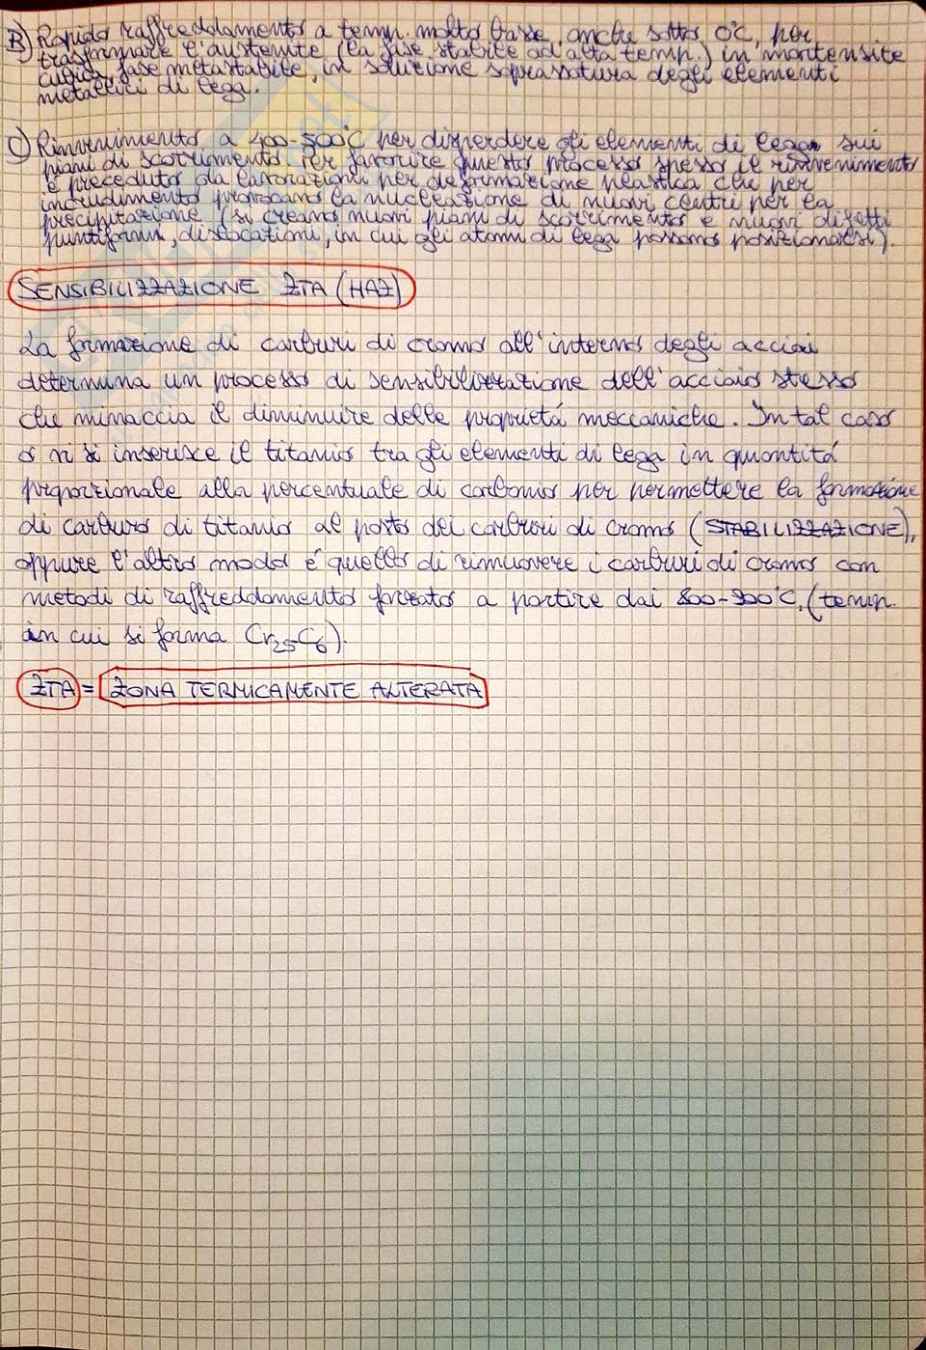 B) Rapido raffreddamento a temp. molto basse, anche sotto 0°C, per
trasformare l'austenite (la fase stabile ad alta temp.) in martensite
cubica, fase metastabile, in soluzione soprassatura degli elementi
metallici di lega.
C) Rinvenimento a 400-500°C per disperdere gli elementi di lega sui
piani di scorrimento. Per favorire questo processo spesso il rinvenimento
è preceduto da lavorazioni per deformazione plastica che per
incrudimento provocano la nucleazione di nuovi centri per la
precipitazione (si creano nuovi piani di scorrimento e nuovi difetti
puntiformi, dislocazioni, in cui gli atomi di lega possono posizionarsi).
SENSIBILIZZAZIONE ZTA (HAZ)
La formazione di carburi di cromo all'interno degli acciai
determina un processo di sensibilizzazione dell'acciaio stesso
che minaccia il diminuire delle proprietá meccaniche. In tal caso
o vi si inserisce il titanio tra gli elementi di lega in quantitá
proporzionale alla percentuale di carbonio per permettere la formazione
di carburo di titanio al posto dei carburi di cromo (STABILIZZAZIONE),
oppure l'altro modo é quello di rimuovere i carburi di cromo con
metodi di raffreddamento forzato a partire dai 800-900°C, (temp.
in cui si forma Cr25C6).
ZTA = ZONA TERMICAMENTE ALTERATA